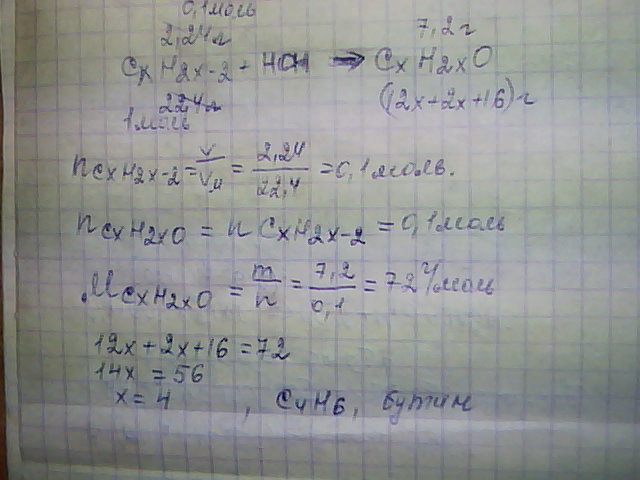 0,1моль
2,24л 7,2г
CxH2x-2 + HOH → CxH2xO
22,4л (12x+2x+16)г
1моль
nCxH2x-2 = V/Vм = 2,24/22,4 = 0,1моль.
nCxH2xO = nCxH2x-2 = 0,1моль
MCxH2xO = m/n = 7,2/0,1 = 72г/моль
12x+2x+16=72
14x = 56
x=4 , C4H6, бутин